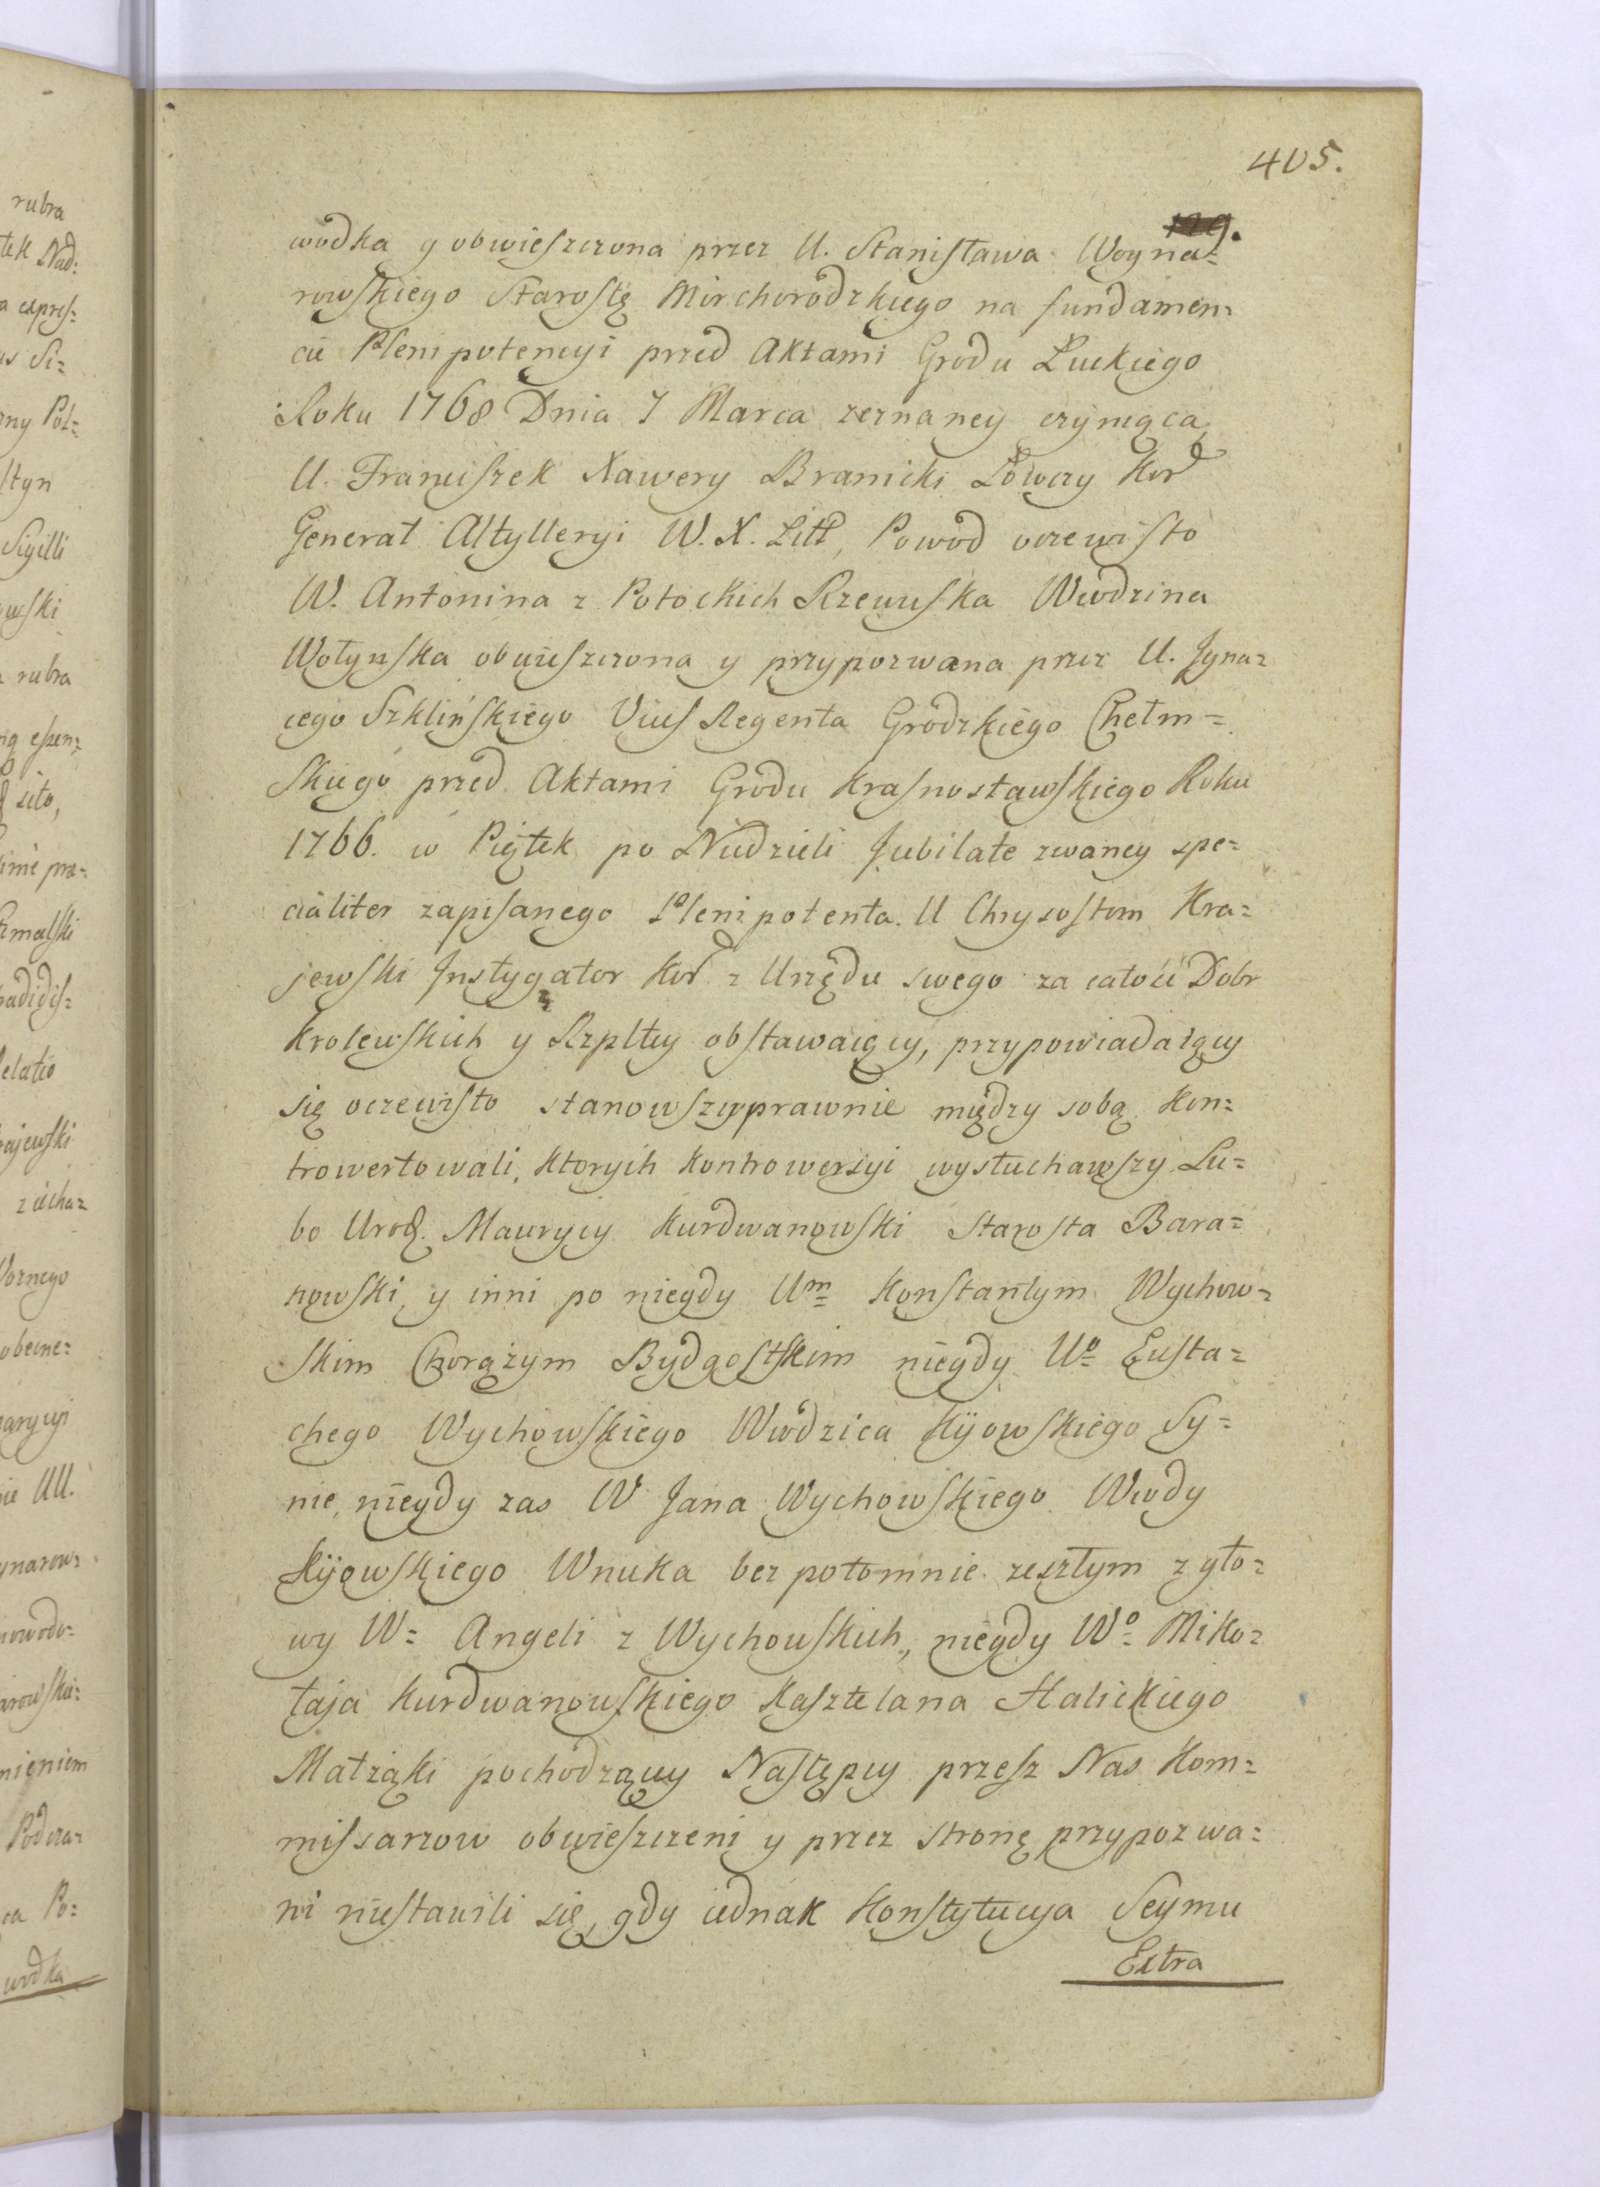 405.
wodka y obwieszczona przez U. Stanisława Woyna=
rowskiego Starostę Mirchorodzkiego na fundamen=
cie Plenipotencyi przed Aktami Grodu Łuckiego
Roku 1768 Dnia 7 Marca zeznaney czyniąca
U. Franciszek Xawery Branicki Łowczy Kor
Generał Altylleryi W. X. Litt, Powod oczewisto
W. Antonina z Potockich Rzewuska Wwodzina
Wołynska obwieszczona y przypozwana przez U. Jgna=
cego Szklińskiego Vices Regenta Grodzkiego Chełm=
skiego przed Aktami Grodu Krasnostawskiego Roku
1766. w Piątek po Niedzieli Jubilate zwaney spe=
cialiter zapisanego Plenipotenta. U Chrysostom Kra=
jewski Jnstygator Kor z Urzędu swego za całość Dobr
Krolewskich y Rzpltey obstawaiący, przypowiadaiący
się oczewisto stanowszy prawnie między sobą kon=
trowertowali, ktorych kontrowersyi wysłuchawszy Lu=
bo Urod. Maurycy Kurdwanowski Starosta Bara=
nowski y inni po niegdy Um Konstantym Wychow=
skim Chorążym Bydgostkim niegdy Uo Eusta=
chego Wychowskiego Wwodzica Kijowskiego Sy=
nie, niegdy zas W Jana Wychowskiego Wwody
Kijowskiego Wnuka bez potomnie zeszłym z gło=
wy W= Angeli z Wychowskich, niegdy Wo Miko=
łaja Kurdwanowskiego Kasztelana Halickiego
Małżąki pochodzący Następcy przesz Nas Kom=
missarzow obwieszczeni y przez stronę przypozwa=
ni niestawili się, gdy iednak Konstytucya Seymu
Extra